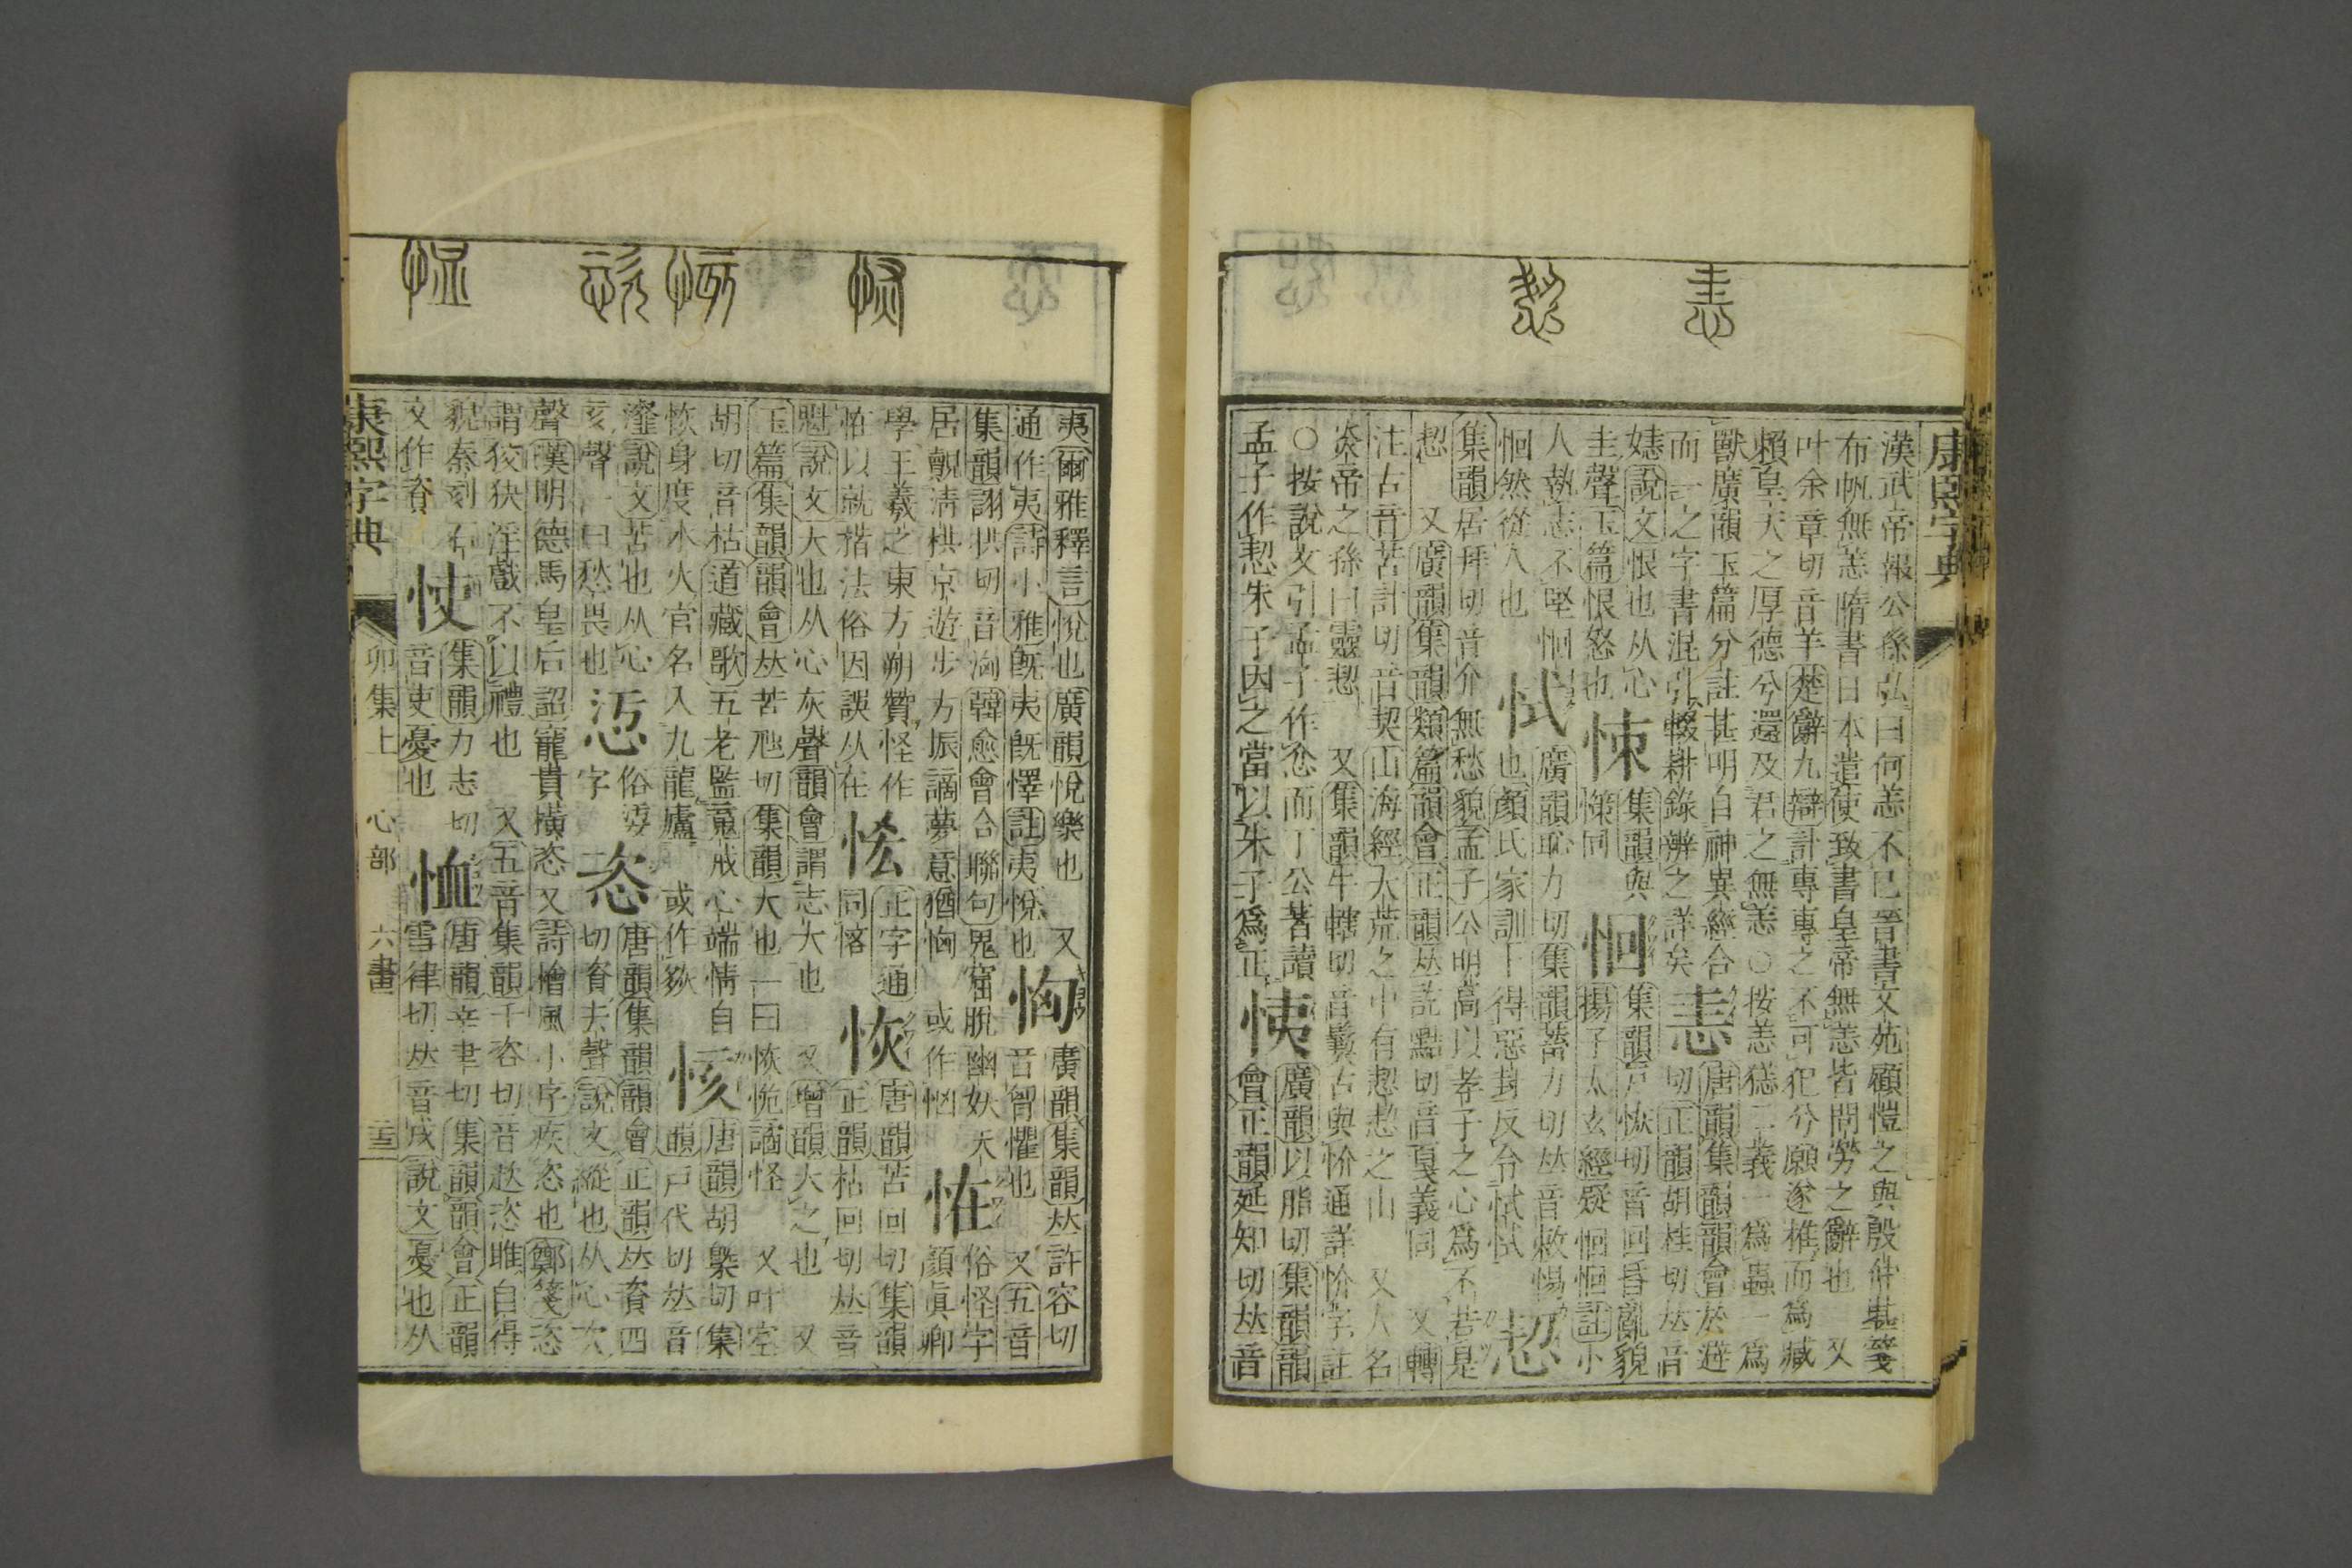 康熙字典
漢武帝報公孫弘曰何恙不已晉書文苑顧愷之與殷仲堪箋
布帆無恙隋書日本遣使致書皇帝無恙皆問勞之辭也 又
叶余章切音羊楚辭九辯計專專之不可化兮願遂推而爲臧
賴皇天之厚德兮還及君之無恙○按恙㺊二義一爲蟲一爲
獸廣韻玉篇分註甚明自神異經合
而一之字書混引輟耕錄辨之詳矣
恚 唐韻集韻韻會於避
切正韻胡桂切𠀤音
說文恨也从心
圭聲玉篇恨怒也
集韻與
同
恛 集韻戸恢切音回昏亂貌
揚子太玄經疑恛恛註小
人執志不堅恛
恛然從人也
恜 廣韻恥力切集韻蓄力切𠀤音敕惕
也顏氏家訓卜得惡封反台恜恜
恝
集韻居拜切音介無愁貌孟子公明高以孝子之心爲不若是
恝 又廣韻集韻類篇韻會正韻𠀤訖黠切音戛義同 又轉
注古音苦計切音契山海經大荒之中有恝恝之山 又人名
炎帝之孫曰靈恝 又集韻牛轄切音 古與忦通詳忦字註
○按說文引孟子作忿而丁公著讀
孟子作恝朱子因之當以朱子爲正
恞 廣韻以脂切集韻韻
會正韻延知切𠀤音
夷爾雅釋言悅也廣韻悅樂也 又
通作夷詩小雅旣夷旣懌註夷悅也
恟 廣韻集韻𠀤許容切
音匈懼也 又五音
集韻詡拱切音洶韓愈會合聯句鬼窟脫幽妖天
居覿淸栱京遊步方振謫夢意猶恟 或作忷
恠 俗怪字
顏眞卿
學王羲之東方朔贊怪作
恠以就揩法俗因誤从在
正字通
同
恢 唐韻苦回切集韻
正韻枯回切𠀤音
魁說文大也从心灰聲韻會謂志大也 又增韻大之也 又
玉篇集韻韻會𠀤苦虺切集韻大也一曰恢恑譎怪 又叶空
胡切音枯道藏歌五老監竟戒心端情自
恢身度水火官名入九龍廬 或作
㤥 唐韻胡槩切集
韻戸代切𠀤音
瀣說文苦也从心
亥聲一曰愁畏也
俗
字
恣 唐韻集韻韻會正韻𠀤資四
切資去聲說文縱也从心次
聲漢明德馬皇后詔寵貴橫恣又詩檜風小序疾恣也鄭箋恣
謂狡狭淫戲不以禮也 又五音集韻千咨切音趑恣睢自得
貌秦刻石
文作
㤦 集韻力志切
音吏憂也
恤 唐韻辛聿切集韻韻會正韻
雪律切𠀤音戌說文憂也从
康熙字典 卯集上 心部 六畫